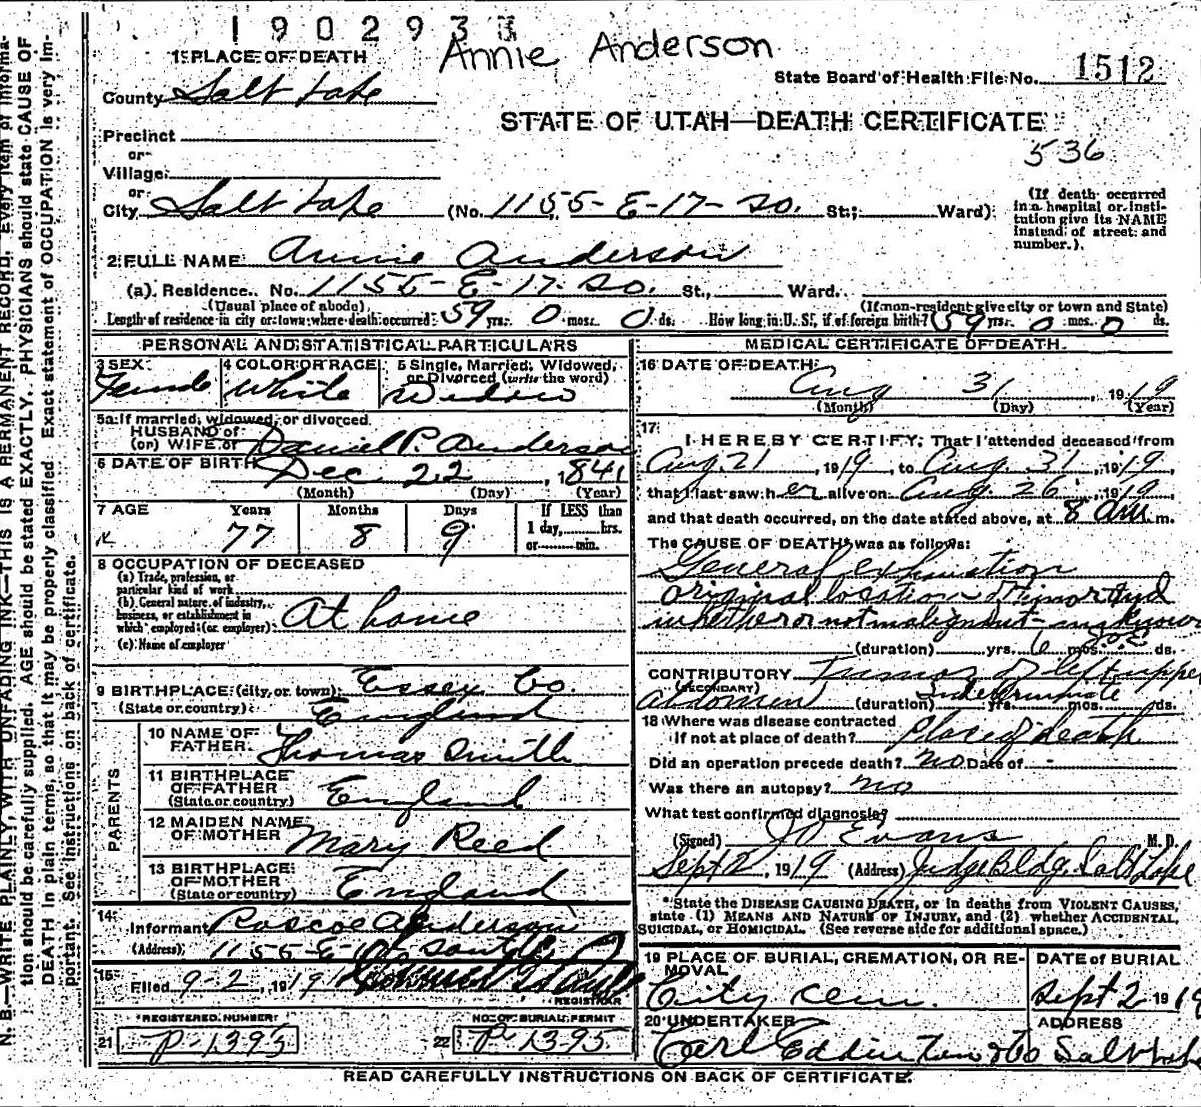 1902933
Annie Anderson
1 PLACE OF DEATH
State Board of Health File No. 1512
County Salt Lake
STATE OF UTAH—DEATH CERTIFICATE
Precinct
536
or
Village
or
City Salt Lake (No. 1155-E-17-So. St.; Ward)
(If death occurred in a hospital or institution give its NAME instead of street and number.)
2 FULL NAME Annie Anderson
(a) Residence. No. 1155-E-17-So. St., Ward.
(Usual place of abode) (If non-resident give city or town and State)
Length of residence in city or town where death occurred 59 yrs. 0 mos. 0 ds. How long in U. S., if of foreign birth? 59 yrs. 0 mos. 0 ds.
PERSONAL AND STATISTICAL PARTICULARS
3 SEX Female
4 COLOR OR RACE White
5 Single, Married, Widowed, or Divorced (write the word) Widow
5a If married, widowed, or divorced
HUSBAND of
(or) WIFE of Daniel P. Anderson
6 DATE OF BIRTH Dec 22, 1841
(Month) (Day) (Year)
7 AGE Years Months Days If LESS than
77 8 9 1 day, hrs.
or min.
8 OCCUPATION OF DECEASED
(a) Trade, profession, or
particular kind of work
(b) General nature of industry,
business, or establishment in
which employed (or employer) At home
(c) Name of employer
9 BIRTHPLACE (city or town) Essex Co.
(State or country) England
PARENTS
10 NAME OF
FATHER Thomas Smith
11 BIRTHPLACE
OF FATHER
(State or country) England
12 MAIDEN NAME
OF MOTHER Mary Reed
13 BIRTHPLACE
OF MOTHER
(State or country) England
14
Informant Roscoe Anderson
(Address) 1155-E-17 South
15
Filed 9-2, 191
REGISTRAR
REGISTERED NUMBER
21 P-1395
NO. OF BURIAL PERMIT
22 P-1395
MEDICAL CERTIFICATE OF DEATH
16 DATE OF DEATH
Aug 31, 1919
(Month) (Day) (Year)
17
I HEREBY CERTIFY, That I attended deceased from
Aug. 21, 1919, to Aug. 31, 1919,
that I last saw her alive on Aug. 26, 1919,
and that death occurred, on the date stated above, at 8 am m.
The CAUSE OF DEATH* was as follows:
General exhaustion
original location of tumor and
whether or not malignant - unknown
(duration) yrs. 6 mos. ds.
CONTRIBUTORY Tumor of left upper
(SECONDARY)
abdomen (duration) Indeterminate yrs. mos. ds.
18 Where was disease contracted
If not at place of death? Place of death
Did an operation precede death? no Date of -
Was there an autopsy? no
What test confirmed diagnosis?
(Signed) J O Evans M. D.
Sept 2, 1919 (Address) Judge Bldg. Salt Lake
*State the DISEASE CAUSING DEATH, or in deaths from VIOLENT CAUSES,
state (1) MEANS AND NATURE OF INJURY, and (2) whether ACCIDENTAL,
SUICIDAL, or HOMICIDAL. (See reverse side for additional space.)
19 PLACE OF BURIAL, CREMATION, OR REMOVAL City Cem.
DATE of BURIAL
Sept 2 1919
20 UNDERTAKER
ADDRESS
Salt Lake
READ CAREFULLY INSTRUCTIONS ON BACK OF CERTIFICATE.
N. B.—WRITE PLAINLY, WITH UNFADING INK—THIS IS A PERMANENT RECORD. Every item of informa-
tion should be carefully supplied. AGE should be stated EXACTLY. PHYSICIANS should state CAUSE OF
DEATH in plain terms, so that it may be properly classified. Exact statement of OCCUPATION is very im-
portant. See instructions on back of certificate.